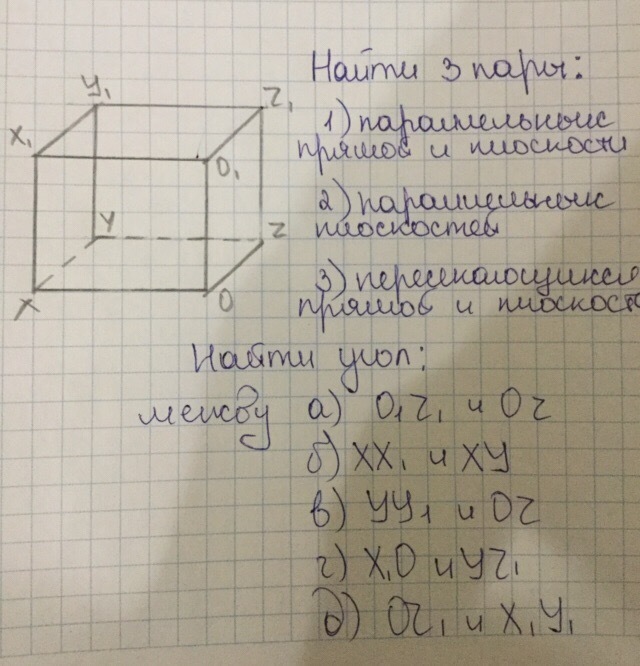 Найти 3 пары:
1) параллельных
прямой и плоскости
2) параллельных
плоскостей
3) пересекающихся
прямой и плоскост
Y₁
Z₁
X₁
O₁
Y
Z
X
O
Найти угол:
между а) O₁Z₁ и OZ
б) XX₁ и XY
в) YY₁ и OZ
г) X₁O и YZ₁
д) OZ₁ и X₁Y₁